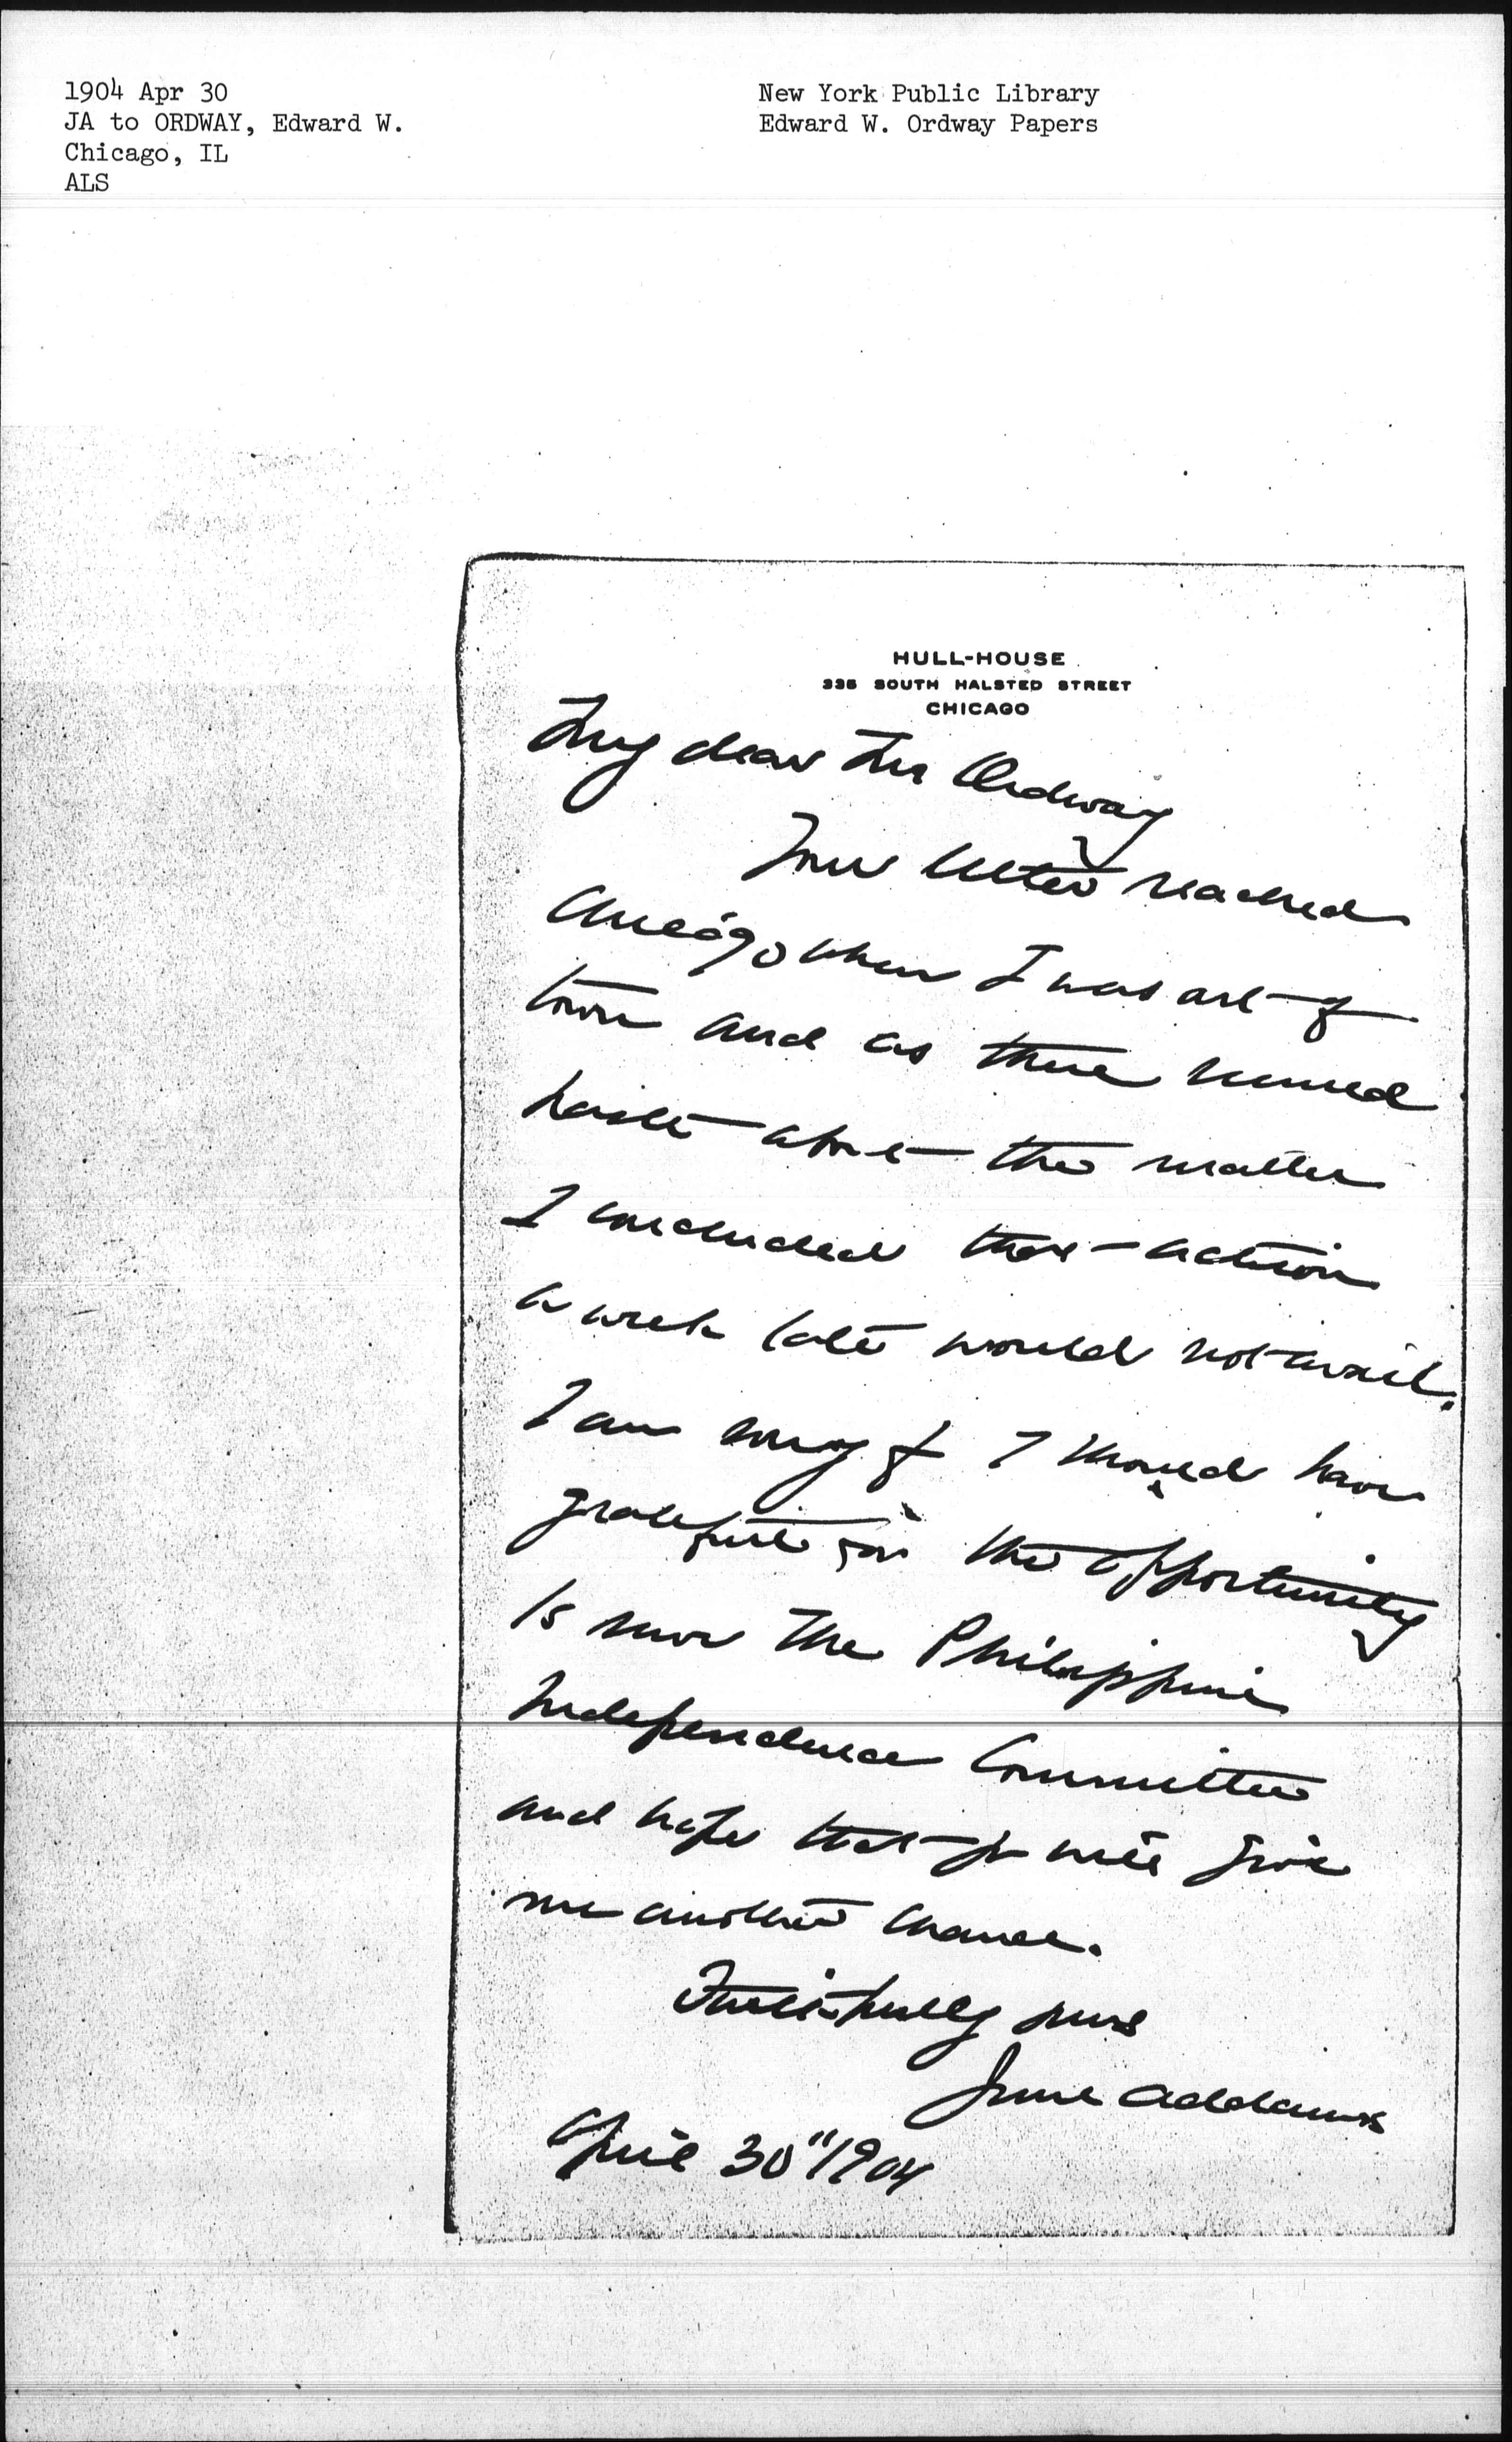 1904 Apr 30
JA to ORDWAY, Edward W.
Chicago, IL
ALS
New York Public Library
Edward W. Ordway Papers
HULL-HOUSE
335 SOUTH HALSTED STREET
CHICAGO
My dear Mr Ordway
Your letter reached
Chicago when I was out of
town and as there seemed
haste about the matter
I concluded that action
a week late would not avail.
I am sorry for I should have
grateful for the opportunity
to serve the Philippine
Independence Committee
and hope that you will give
me another chance.
Faithfully yours
Jane Addams
April 30" 1904